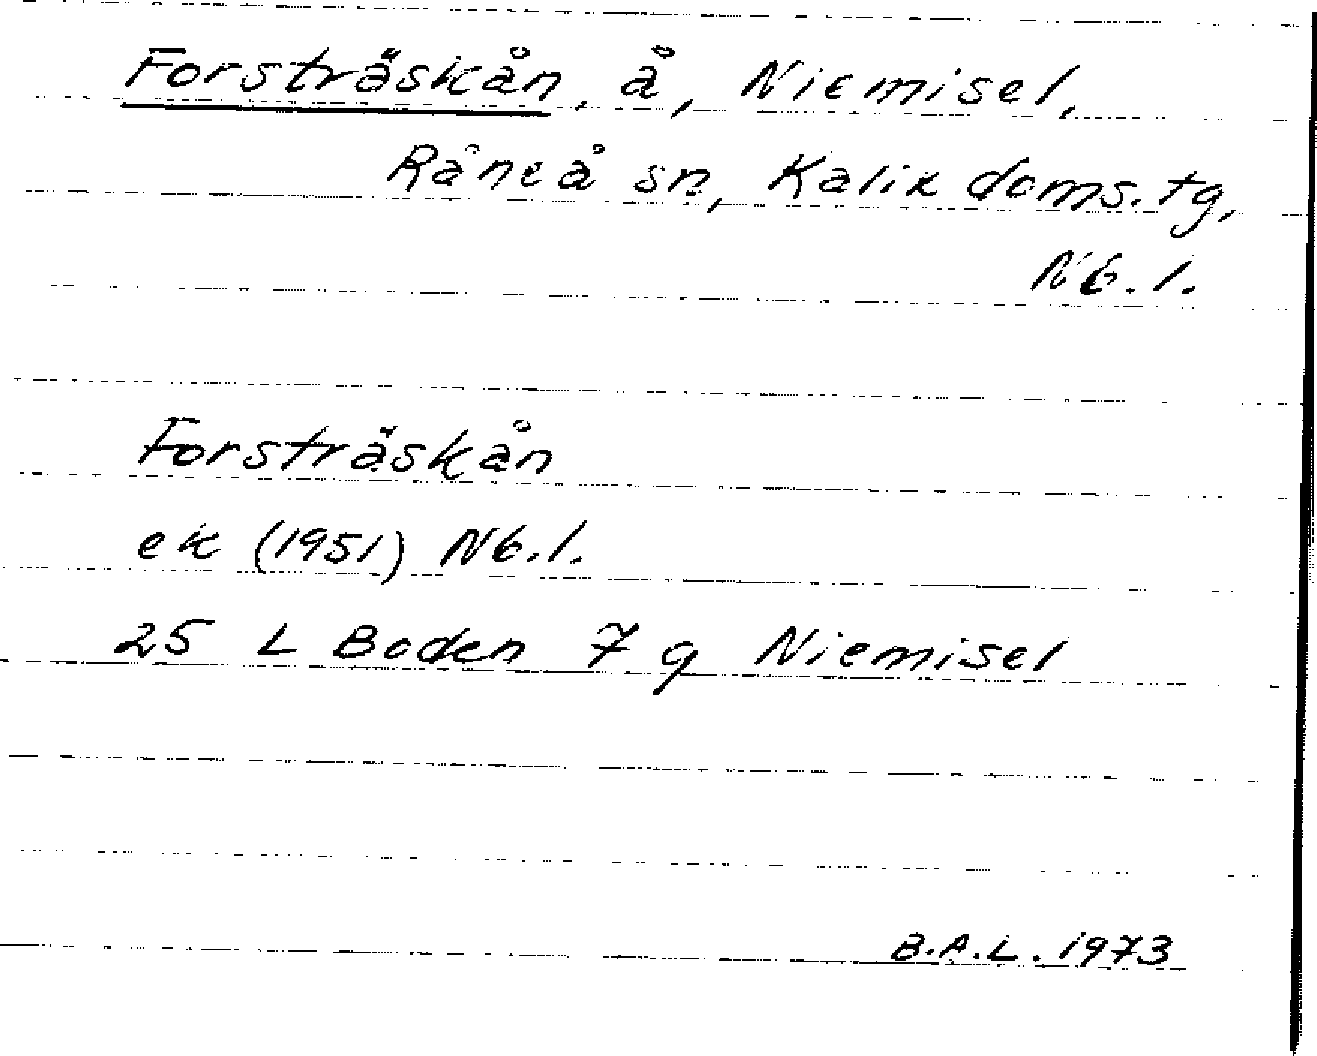 Forsträskån, å, Niemisel,
Råneå sn, Kalix doms.tg,
Nb.l.
Forsträskån
ek (1951) Nb.l.
25 L Boden 7 g Niemisel
B.A.L. 1973